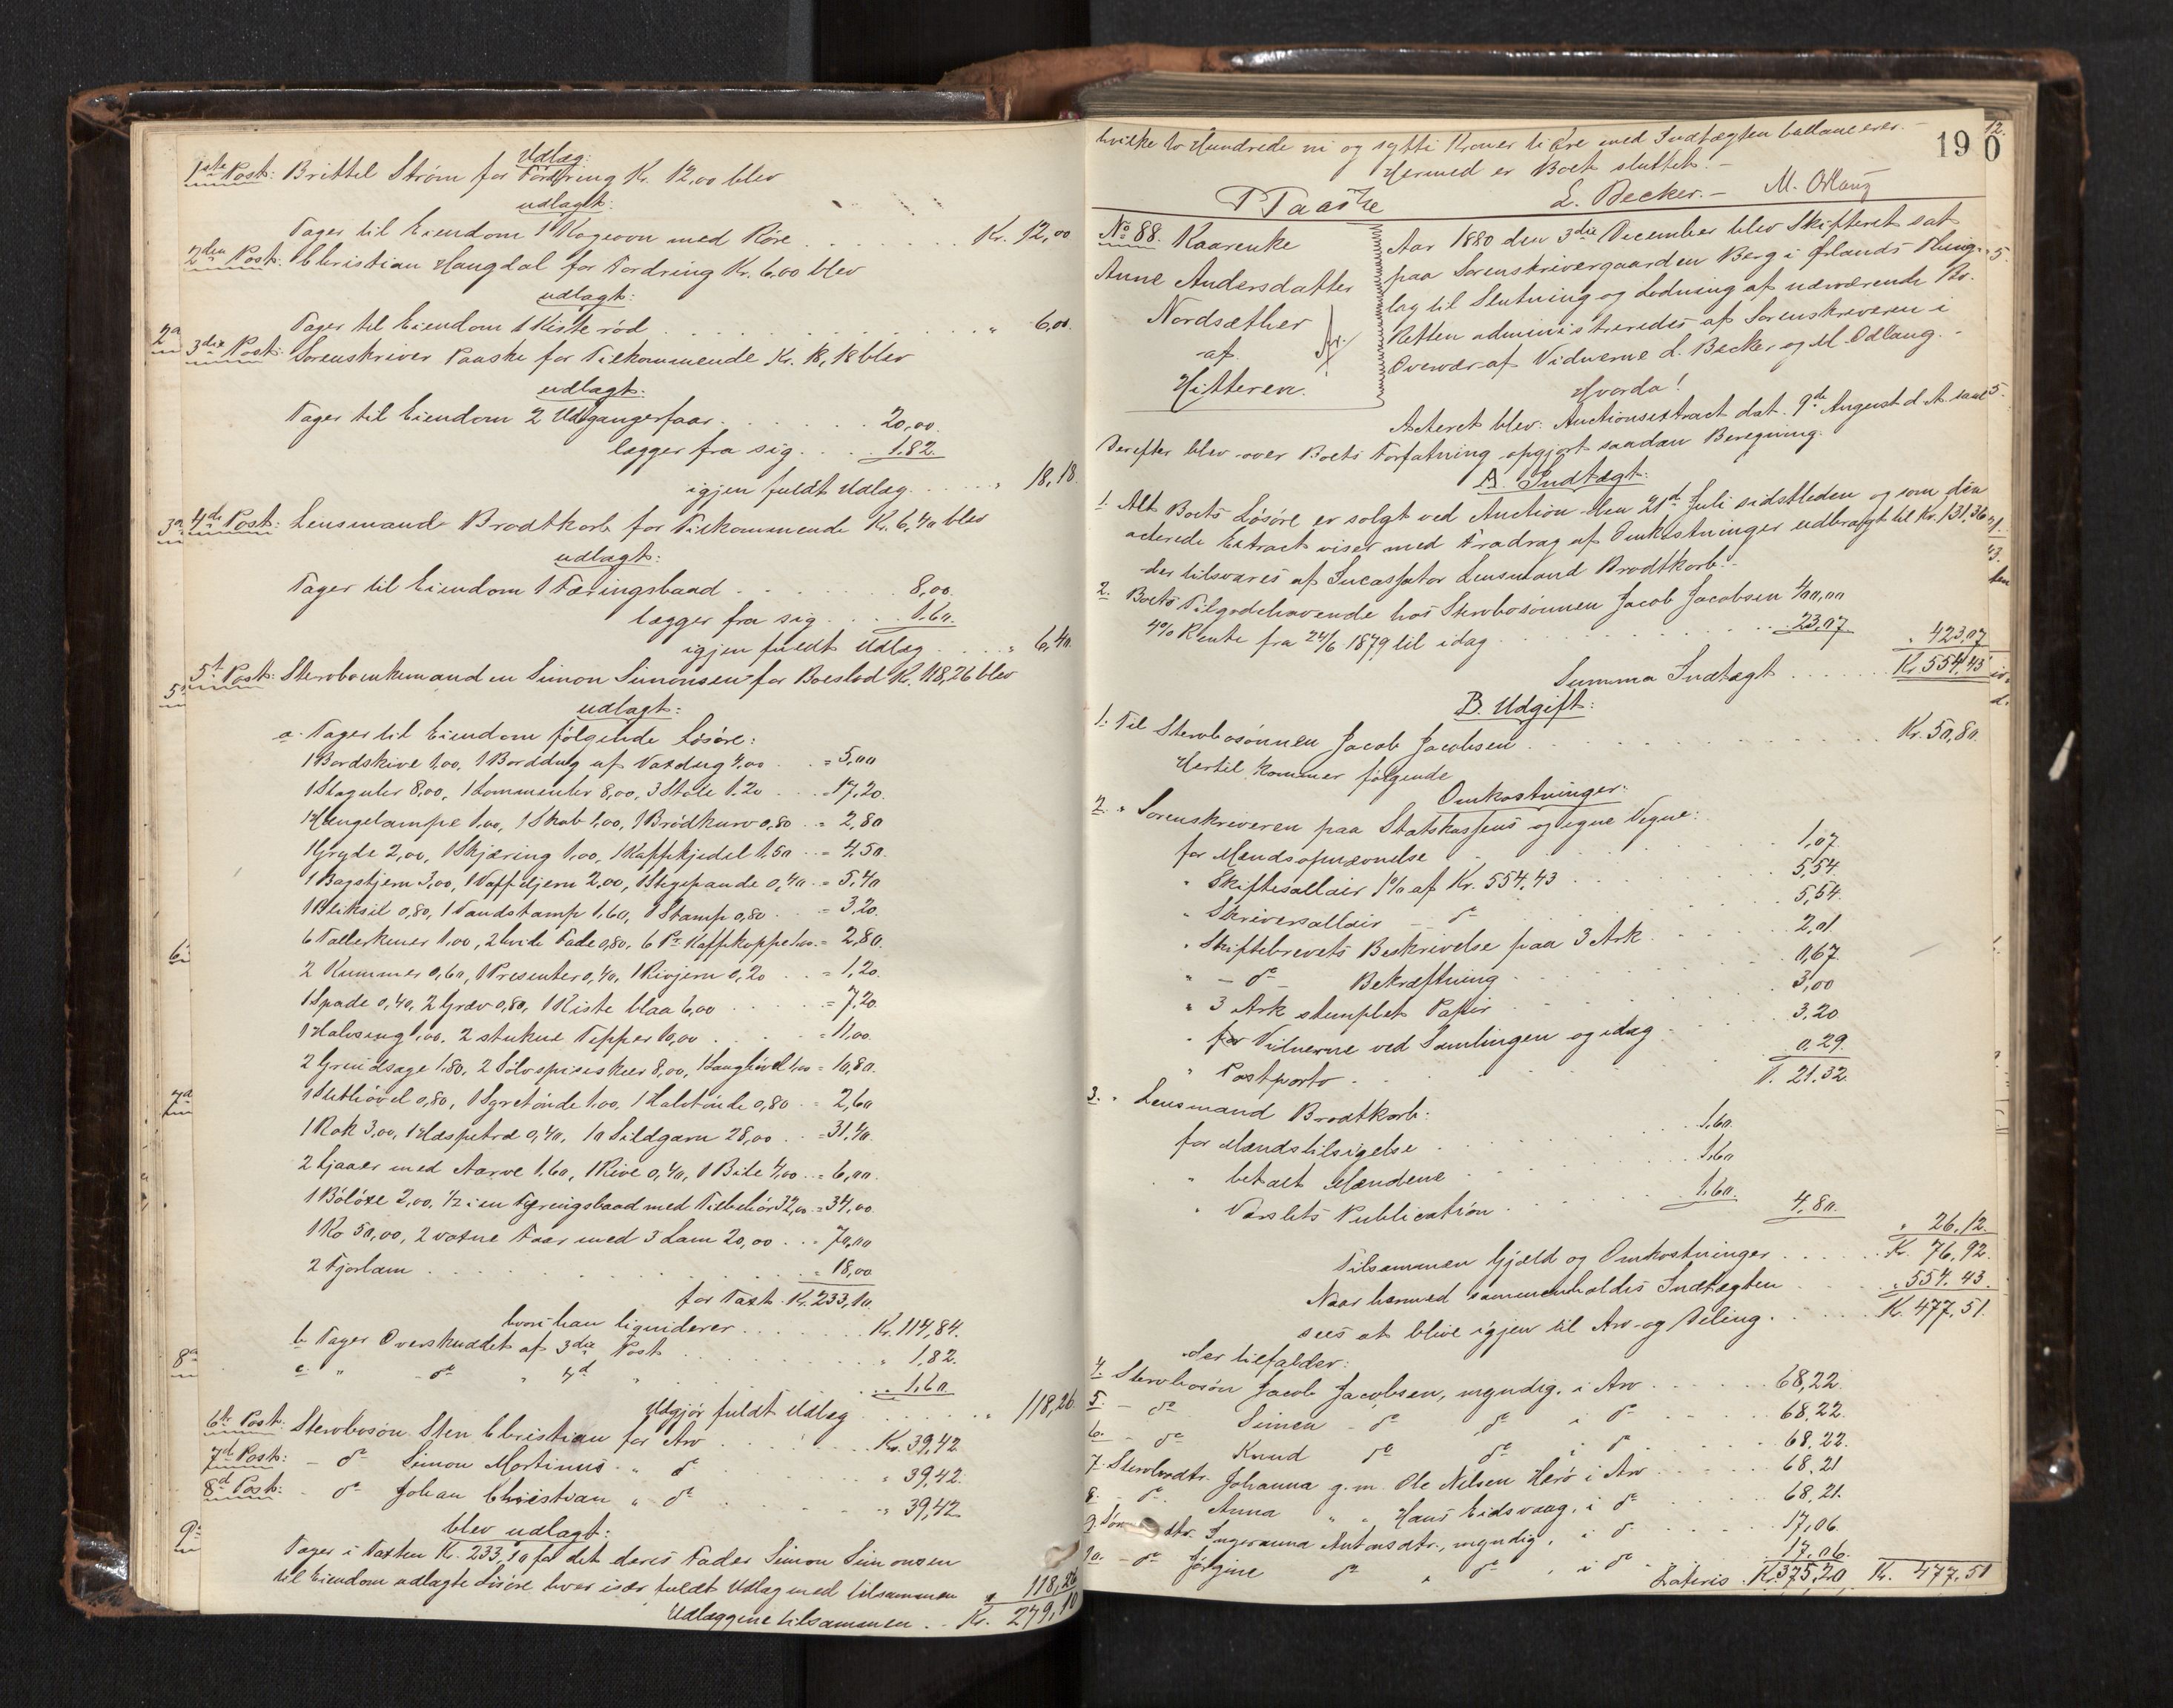 Udlæg:
1ste Post: Brittel Strøm for Fordring Kr. 12,00 blev
udlagt:
Tager til Eiendom 1 Kogeovn med Röre . . . Kr. 12,00
2den Post. Christian Haugdal for Fordring Kr. 6,00 blev
udlagt:
Tager til Eiendom 1 Kiste röd . . . " 6,00.
3die Post: Sorenskriver Paaske for Tilkommende Kr. 18,18 blev
udlagt:
Tager til Eiendom 2 Udgangerfaar . . . 20,00.
lægger fra sig . . . 1,82.
igjen fuldt Udlæg . . . " 18,18.
4de Post: Lensmand Brodtkorb for Tilkommende Kr. 6,40 blev
udlagt:
Tager til Eiendom 1 Færingsbaad . . . 8,00.
lægger fra sig . . . 1,60.
igjen fuldt Udlæg . . . " 6,40.
5te Post: Sterboenkemanden Simon Simonsen for Boeslod Kr. 118,26 blev
udlagt:
a. Tager til Eiendom følgende Løsöre:
1 Bordskive 1,00, 1 Borddug af Vaxdug 4,00 . . = 5,00
1 Slaguhr 8,00, 1 Lommeuhr 8,00, 3 Stole 1.20 . . 17,20.
1 Hængelampe 1,00, 1 Skab 1,00, 1 Brödkurv 0,80 . = 2,80
1 Gryde 2,00, 1 Skjæring 1,00, 1 Kaffekjedel 1,50 . . = 4,50.
1 Bagstjern 3,00, 1 Vaffeljern 2,00, 1 Stegepande 0,40 . = 5,40
1 Bliksil 0,80, 1 Vandstamp 1,60, 1 Stamp 0,80 . . = 3,20.
6 Tallerkener 1,00, 2 hvide Fade 0,80, 6 Pr. Kaffekopper 1,00. = 2,80.
2 Kummer 0,60, 1 Presenter 0,40, 1 Rivjern 0,20 . . = 1,20.
1 Spade 0,40, 2 Græv 0,80, 1 Kiste blaa 6,00 . . = 7,20.
1 Halvseng 1,00, 2 stukne Tepper 10,00 . . = 11,00.
2 Grindsage 1,80, 2 Sölvspiseskeer 8,00, 1 Langhövel 1,00 = 10,80.
1 Sletthövel 0,80, 1 Syretönde 1,00, 1 Halvtönde 0,80 . . = 2,60
1 Rok 3,00, 1 Hæspetræ 0,40, 10 Sildgarn 28,00 . . = 31,40.
2 Ljaaer med Aarve 1.60, 1 Rive 0,40, 1 Bile 4,00 . . = 6,00.
1 Bölöxe 2,00, 1/2 i en Færingsbaad med Tilbehör 32,00. = 34,00.
1 Ko 50,00, 2 voxne Faar med 3 Lam 20,00 . . . = 70,00
2 Fjorlam . . . = 18,00
for Taxt. Kr. 233,10.
hvori han liquiderer . . . Kr. 114,84.
b. Tager Overskuddet af 3die Post . . . " 1,82.
c. " do " 4de " . . . " 1,60
Udgjör fuldt Udlæg . . . " 118,26
6te Post. Sterbosön Sten Christian for Arv . . . Kr. 39,42
7de Post: - do Simon Martinus " do . . . " 39,42.
8de Post: - do Johan Christian " do . . . " 39,42
blev udlagt:
Tager i Taxten Kr. 233,10 for det deres Fader Simon Simonsen
til Eiendom udlagte Lösöre hver især fuldt Udlæg med tilsammen " 118,26
Udlæggene tilsammen . . Kr. 279,10
190
hvilke to Hundrede ni og sytti Kroner ti Øre med Indtægten ballancerer. -
Hermed er Boet sluttet. -
Paaske L. Becker. - M. Odlaug
No 88. Kaarenke
Anne Andersdatter
Nordsæther
af
Hitteren.
Aar 1880 den 3die December blev Skifteret sat
paa Sorenskrivergaarden Berg i Ørlands Thing-
lag til Slutning og Lodning af nærværende Bo.
Retten administreredes af Sorenskriveren i
Overvær af Vidnerne L. Becker og M. Odlaug. -
Hvorda!
Acteret blev: Auctionsextract dat. 9de August d. A.
Derefter blev over Boets Forfatning opgjort saadan Beregning.
A. Indtægt:
1. Alt Boets Lösöre er solgt ved Auction den 21de Juli sidstleden og som den
acterede Extract viser med Fradrag af Omkostninger udbragt til Kr. 131,36
der tilsvares af Incassator Lensmand Brodtkorb. -
2. Boets Tilgodehavende hos Sterbosönnen Jacob Jacobsen 400,00
4% Rente fra 24/6 1879 til idag . . . 23,07 " 423,07
Summa Indtægt . . . Kr. 554,43
B. Udgift:
1. Til Sterbosönnen Jacob Jacobsen . . . Kr. 50,80.
Hertil kommer følgende
Omkostninger:
2. " Sorenskriveren paa Statskassens og egne Vegne:
for Mændsopnævnelse . . . 1,07.
" Skiftesallair 1% af Kr. 554,43 . . . 5,54.
" Skriversallair - do . . . 5,54.
" Skiftebrevets Beskrivelse paa 3 Ark . . . 2,01.
" - do - Bekræftning . . . 0,67.
" 3 Ark stemplet Papir . . . 3,00
" for Vidnerne ved Samlingen og idag . . . 3,20
" Postporto . . . 0.29.
21.32.
3. " Lensmand Brodtkorb:
for Mændstilsigelse . . . 1,60.
" betalt Mændene . . . 1,60
" Varslets Publication . . . 1,60. 4,80. " 26,12.
Tilsammen Gjæld og Omkostninger . . . Kr. 76,92.
Naar hermed sammenholdes Indtægten . . . " 554.43.
sees at blive igjen til Arv og Deling . . . Kr. 477,51.
der tilfalder:
4. Sterbosön Jacob Jacobsen, myndig, i Arv . . . 68,22.
5. - do Simen - do do i do . . . 68,22.
6. - do Knud do do i do . . . 68,22.
7. Sterbodtr. Johanna g. m. Ole Nilsen Herö i Arv . . . 68,21
8. - do Anna " " Hans Eidsvaag, i do . . . 68,21.
9. Sön dtr. Ingeranna Antonsdtr., myndig, i do . . . 17,06.
10. - do Jörgine do " do, i do . . . 17,06.
Lateris . Kr. 375,20 Kr. 477,51